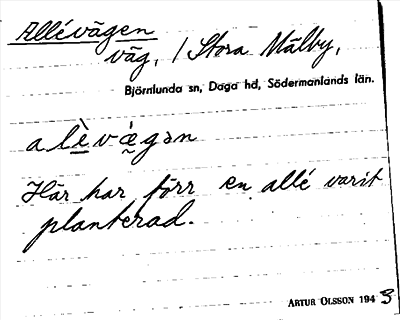 Allévägen
väg, / Stora Mälby,
Björnlunda sn, Daga hd, Södermanlands län.
alèvä̀gən
Här har förr en allé varit
planterad.
ARTUR OLSSON 1943